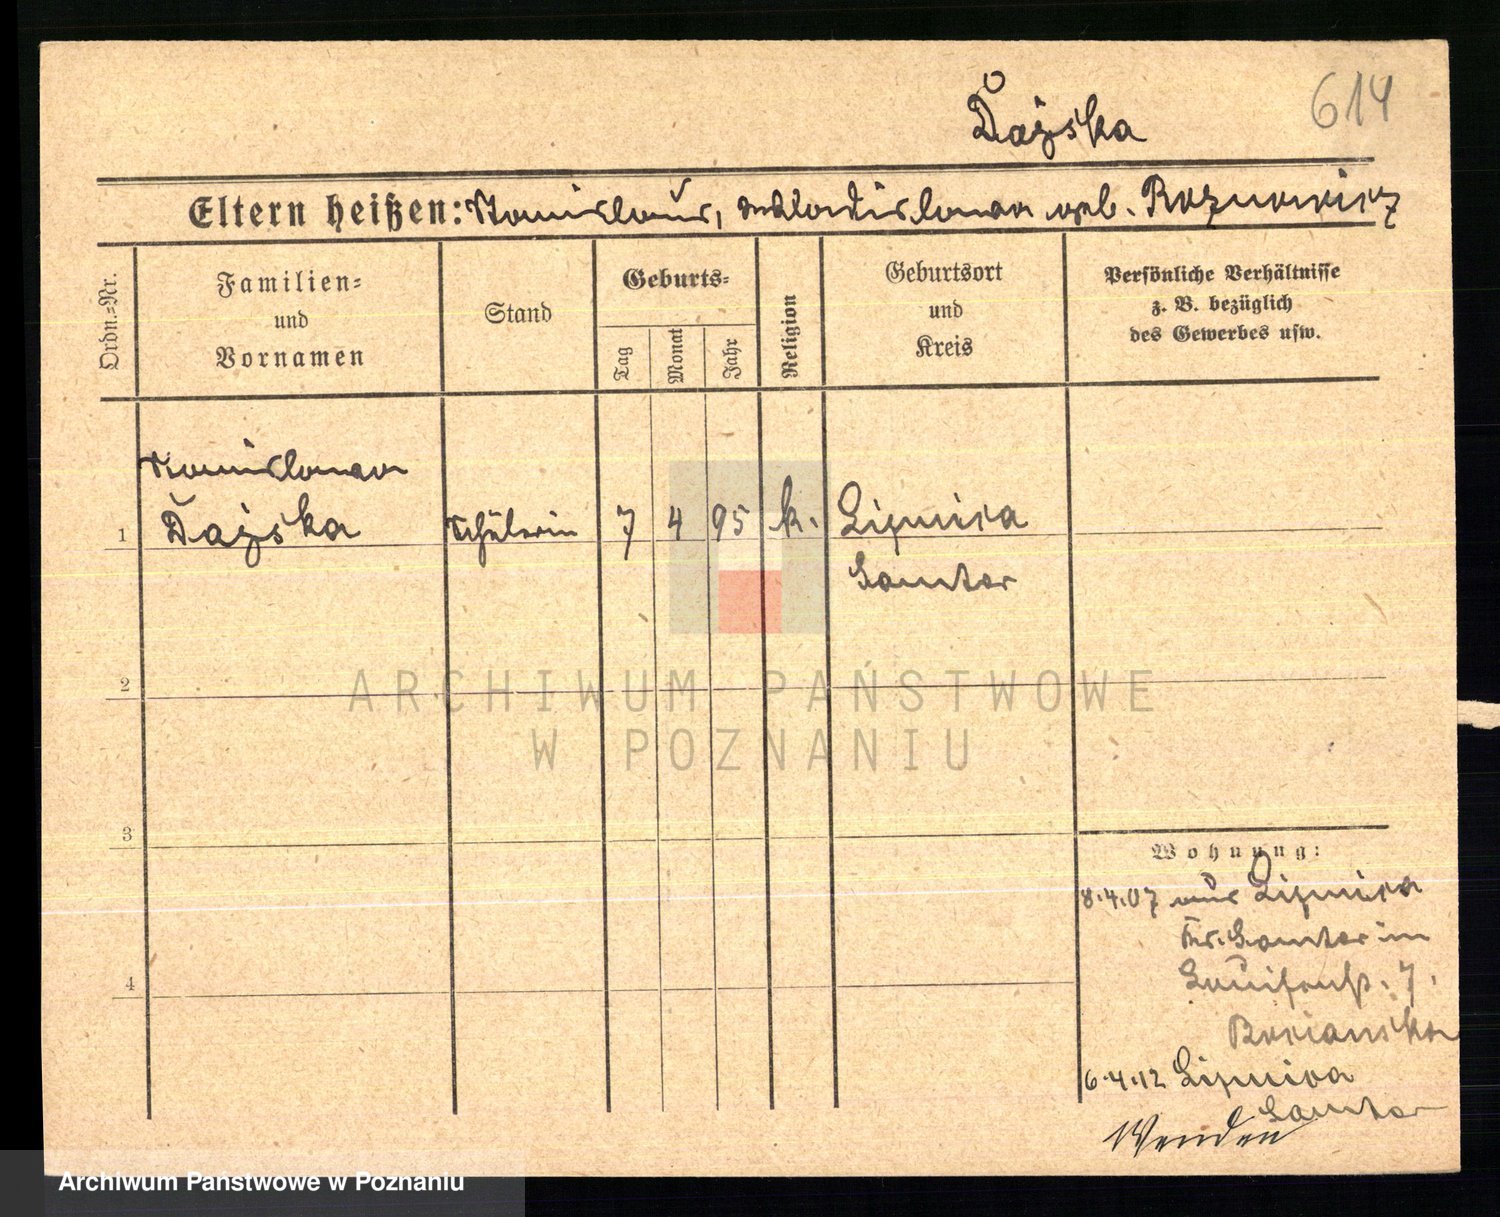 614
Dajska
Eltern heißen: Stanislaus, Wladislawa geb. Roznowicz
Ordn.=Nr.
Familien=
und
Vornamen
Stand
Geburts=
Tag
Monat
Jahr
Religion
Geburtsort
und
Kreis
Persönliche Verhältnisse
z. B. bezüglich
des Gewerbes usw.
Stanislawa
1 Dajska Schülerin 7 4 95 k. Lipnica
Samter
2
3
4
Wohnung:
8.4.07 aus Lipnica
Kr. Samter in
Louisenst. 7.
6.4.12 Lipnica
Samter
Wenden
ARCHIWUM PAŃSTWOWE
W POZNANIU
Archiwum Państwowe w Poznaniu